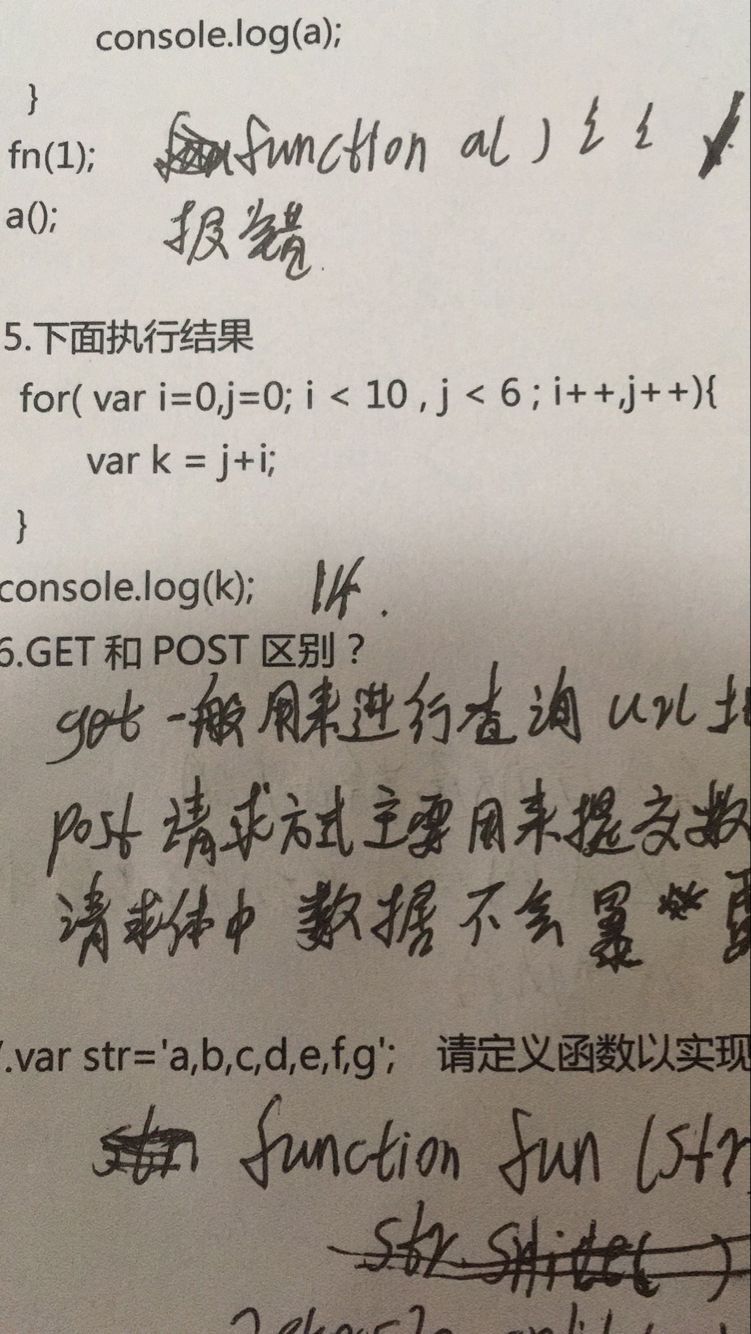 console.log(a);
}
fn(1); function a( ) { {
a(); 报错.
5.下面执行结果
for( var i=0,j=0; i < 10 , j < 6 ; i++,j++){
var k = j+i;
}
console.log(k); 14.
6.GET 和 POST 区别？
get 一般用来进行查询 url
post 请求方式主要用来提交数
请求体中 数据不会暴
7.var str='a,b,c,d,e,f,g'; 请定义函数以实现
function fun (str